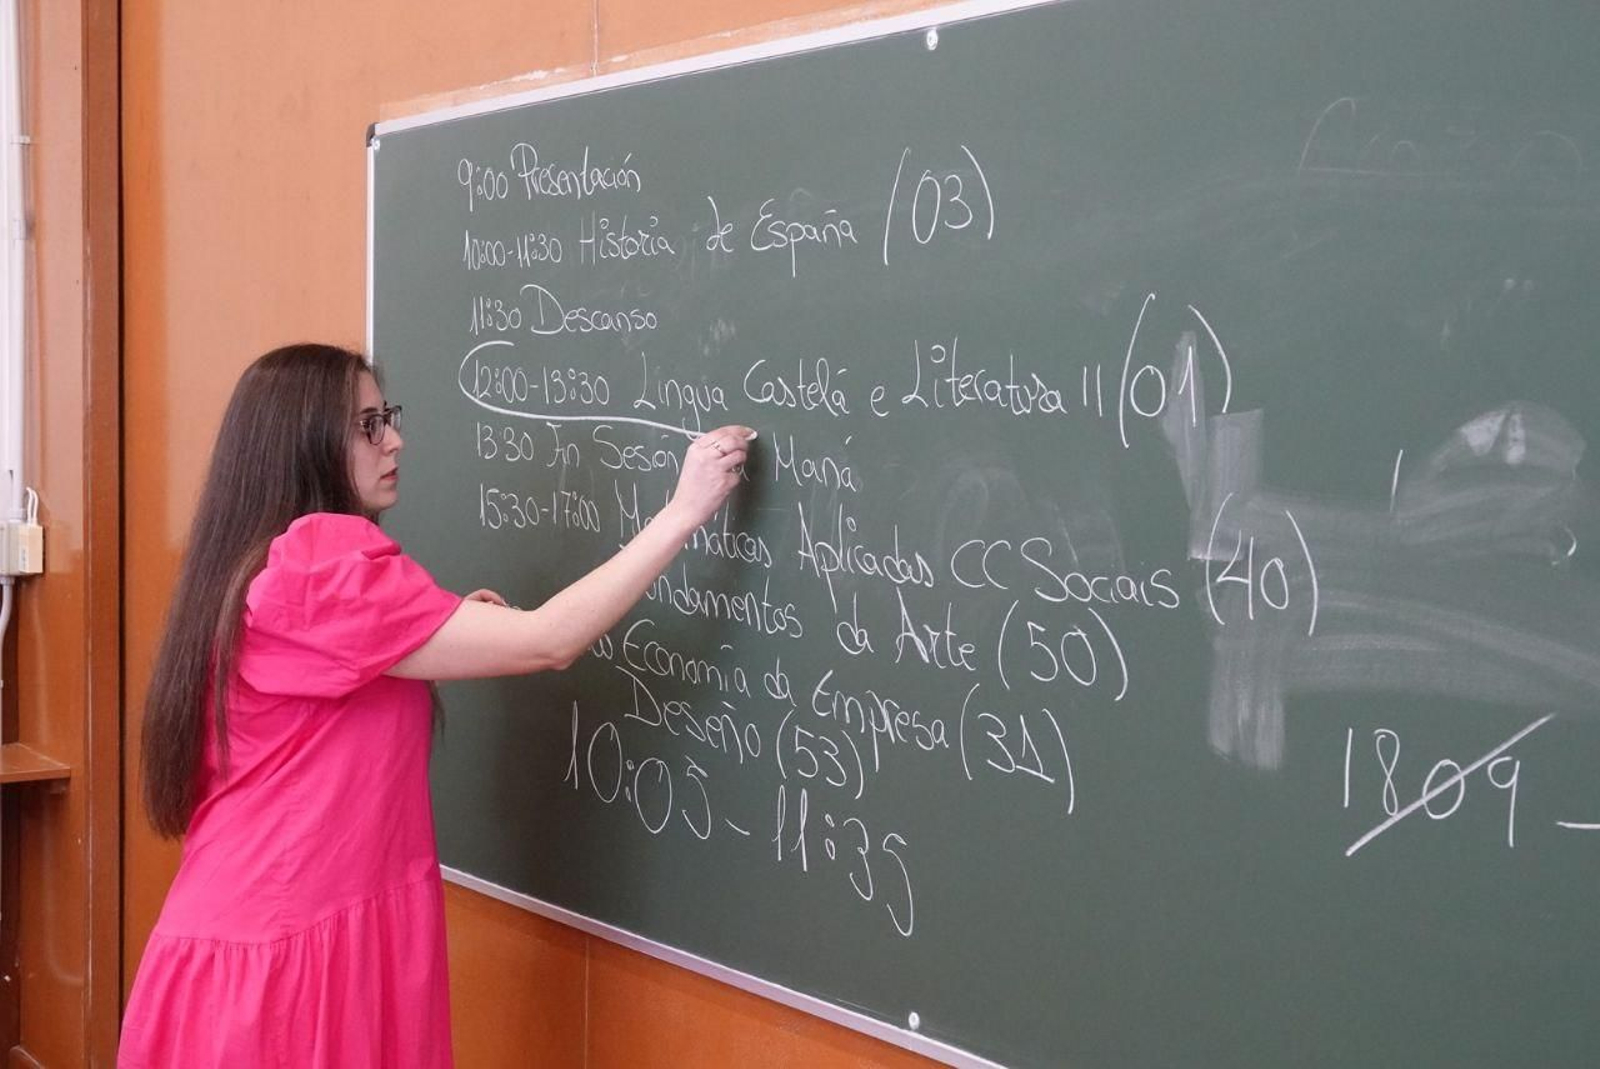 9:00 Presentación
10:00-11:30 Historia de España (03)
11:30 Descanso
12:00-13:30 Lingua Castelá e Literatura II (01)
13:30 Fin Sesión Mañá
15:30-17:00 Matemáticas Aplicadas CC Sociais (40)
Fundamentos da Arte (50)
Economía da Empresa (31)
Deseño (53)
10:05 - 11:35
1809 -